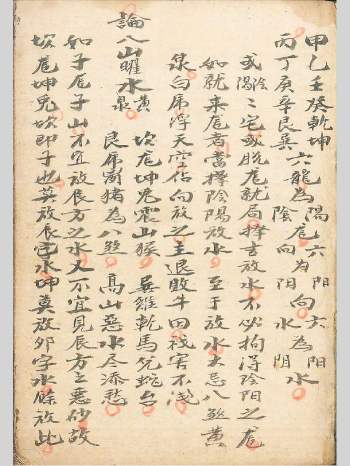 甲乙壬癸乾坤六龍為陽六為陽
丙丁庚辛艮巽陰向陰水
或陰陽二宅或脫龍就局擇吉放水不必拘得陰陽之龍
如就来龍者當擇陰陽放水 至于放水大忌八煞黃
泉白虎浮天空佔向放之主退敗牛田殺害不淺
論八山曜水黃泉
坎龍坤兔震山猴 巽雞乾馬兌蛇台
艮虎離猪為八煞 高山惡水尽添愁
如子龍子山不宜放辰方之水又不宜見辰方之惡砂故
坎龍坤兔坎即子也莫放辰字水坤莫放卯字水餘放此